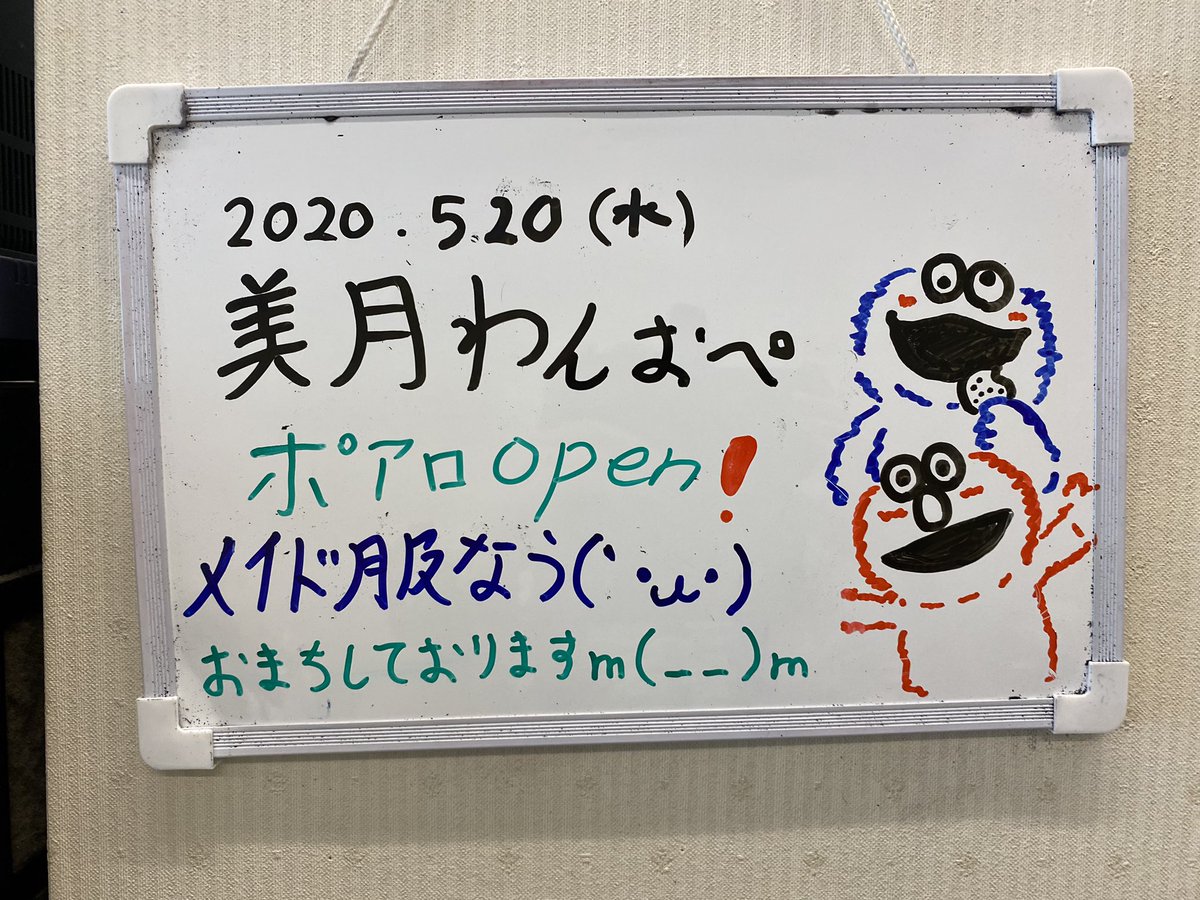 2020.5.20(水)
美月わんおぺ
ポアロopen!
メイド服なう(・ω・)
おまちしておりますm(__)m